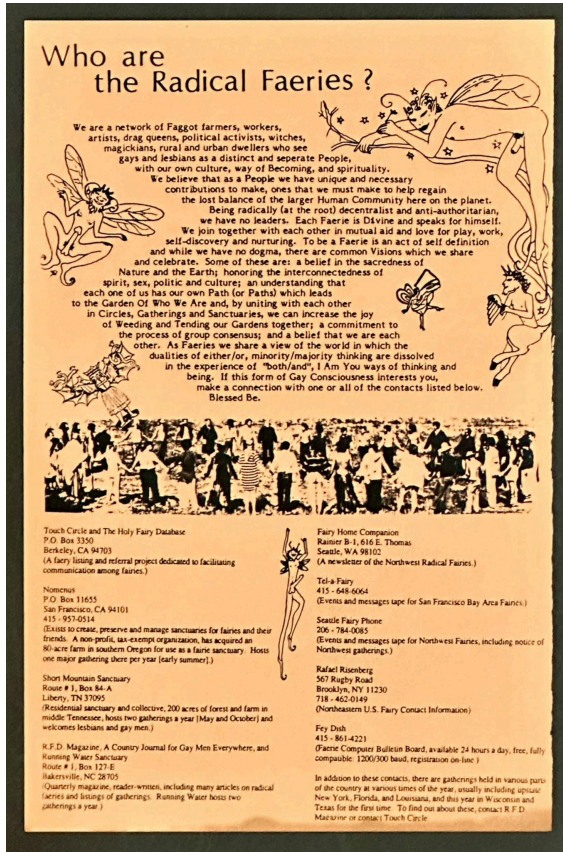 Who are
the Radical Faeries ?
We are a network of Faggot farmers, workers,
artists, drag queens, political activists, witches,
magickians, rural and urban dwellers who see
gays and lesbians as a distinct and seperate People,
with our own culture, way of Becoming, and spirituality.
We believe that as a People we have unique and necessary
contributions to make, ones that we must make to help regain
the lost balance of the larger Human Community here on the planet.
Being radically (at the root) decentralist and anti-authoritarian,
we have no leaders. Each Faerie is Divine and speaks for himself.
We join together with each other in mutual aid and love for play, work,
self-discovery and nurturing. To be a Faerie is an act of self definition
and while we have no dogma, there are common Visions which we share
and celebrate. Some of these are: a belief in the sacredness of
Nature and the Earth; honoring the interconnectedness of
spirit, sex, politic and culture; an understanding that
each one of us has our own Path (or Paths) which leads
to the Garden Of Who We Are and, by uniting with each other
in Circles, Gatherings and Sanctuaries, we can increase the joy
of Weeding and Tending our Gardens together; a commitment to
the process of group consensus; and a belief that we are each
other. As Faeries we share a view of the world in which the
dualities of either/or, minority/majority thinking are dissolved
in the experience of "both/and", I Am You ways of thinking and
being. If this form of Gay Consciousness interests you,
make a connection with one or all of the contacts listed below.
Blessed Be.
Touch Circle and The Holy Fairy Database
P.O. Box 3350
Berkeley, CA 94703
(A faery listing and referral project dedicated to facilitating
communication among fairies.)
Nomenus
P.O. Box 11655
San Francisco, CA 94101
415 - 957-0514
(Exists to create, preserve and manage sanctuaries for fairies and their
friends. A non-profit, tax-exempt organization, has acquired an
80-acre farm in southern Oregon for use as a faerie sanctuary. Hosts
one major gathering there per year [early summer].)
Short Mountain Sanctuary
Route # 1, Box 84-A
Liberty, TN 37095
(Residential sanctuary and collective, 200 acres of forest and farm in
middle Tennessee, hosts two gatherings a year [May and October] and
welcomes lesbians and gay men.)
R.F.D. Magazine, A Country Journal for Gay Men Everywhere, and
Running Water Sanctuary
Route # 1, Box 127-E
Bakersville, NC 28705
(Quarterly magazine, reader-written, including many articles on radical
faeries and listings of gatherings. Running Water hosts two
gatherings a year.)
Fairy Home Companion
Rainier B-1, 616 E. Thomas
Seattle, WA 98102
(A newsletter of the Northwest Radical Fairies.)
Tel-a-Fairy
415 - 648-6064
(Events and messages tape for San Francisco Bay Area Fairies.)
Seattle Fairy Phone
206 - 784-0085
(Events and messages tape for Northwest Fairies, including notice of
Northwest gatherings.)
Rafael Risenberg
567 Rugby Road
Brooklyn, NY 11230
718 - 462-0149
(Northeastern U.S. Fairy Contact Information)
Fey Dish
415 - 861-4221
(Faerie Computer Bulletin Board, available 24 hours a day, free, fully
compatible: 1200/300 baud, registration on-line )
In addition to these contacts, there are gatherings held in various parts
of the country at various times of the year, usually including upstate
New York, Florida, and Louisiana, and this year in Wisconsin and
Texas for the first time To find out about these, contact R.F.D.
Magazine or contact Touch Circle